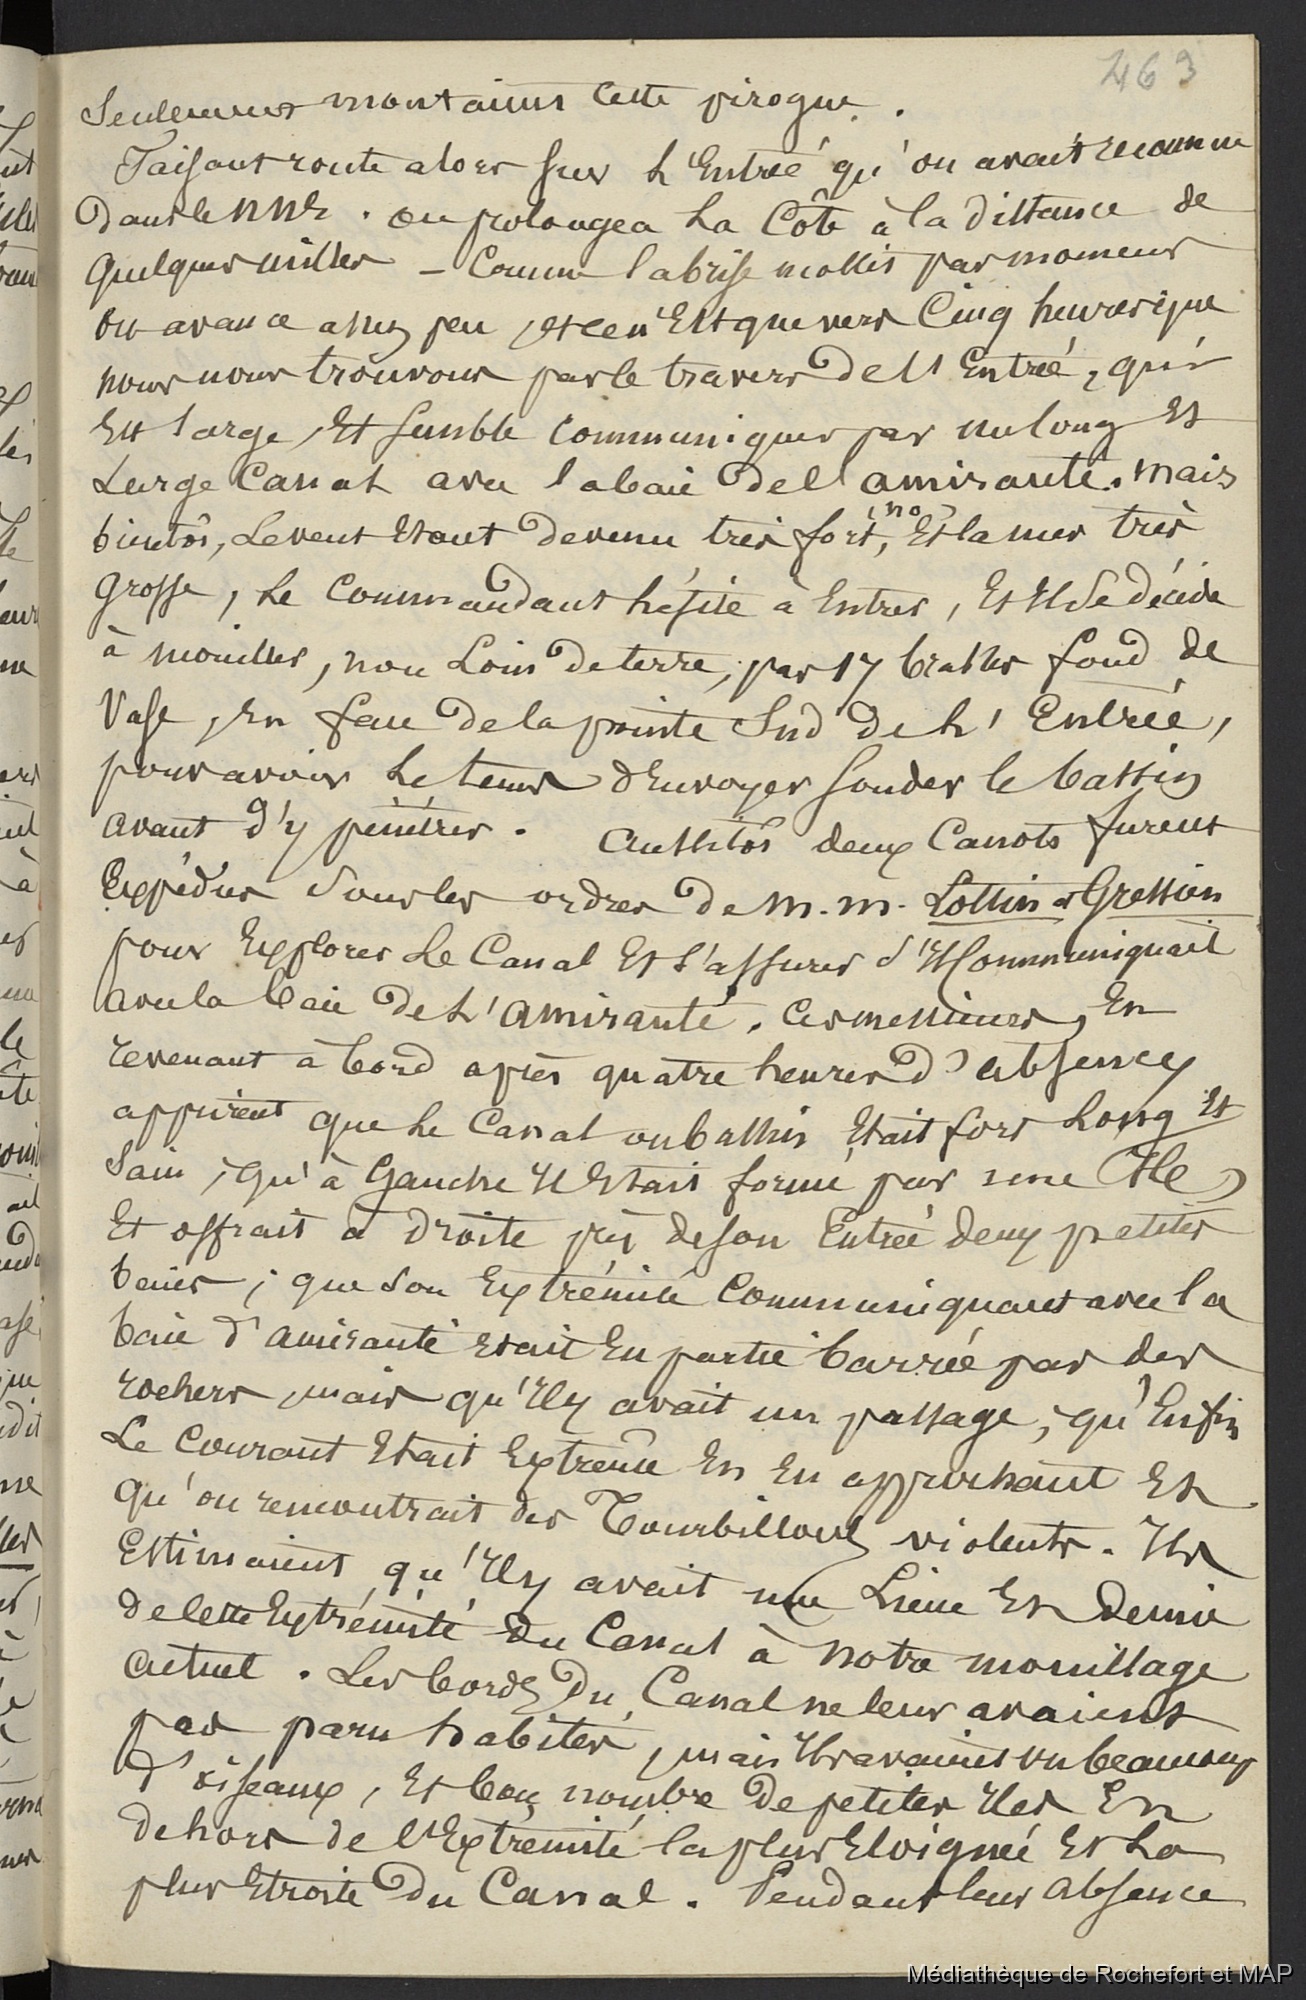 463
Seulement montaient cette pirogue.
Faisant route alors sur L'Entrée qu'on avait reconnue
Dans le NNE. on prolongea La Côte à la distance de
quelques milles – Comme la brise mollit par moments
on avance assez peu, et ce n'Est que vers Cinq heures que
nous nous trouvons par le travers De l'Entrée, qui
Est large, Et semble communiquer par un long Et
Large Canal avec la baie de l'amirauté. Mais
bientôt, Le vent Etant devenu très fort, no, Et la mer très
grosse, Le Commandant hésite à Entrer, Et Il se décide
à mouiller, non Loin De terre, par 17 brasses fond de
Vase, En face De la pointe Sud De L'Entrée,
pour avoir Le tems d'Envoyer sonder le bassin
avant d'y pénétrer. aussitôt deux Canots furent
Expédiés Sous les ordres De M.M. Lottin et Gressien
pour Explorer Le Canal Et s'assurer s'Il Communiquait
avec la baie De L'amirauté. Ces messieurs, En
revenant à bord après quatre heures d'absence,
apprirent que Le Canal ou bassin Etait fort Long Et
Sain, qu'à Gauche Il Etait formé par une Ile,
Et offrait à Droite près de son Entrée deux petites
baies; que son Extrémité Communiquant avec la
baie d'amirauté Etait En partie barrée par des
rochers, mais qu'Il y avait un passage; qu'Enfin
Le Courant Etait Extrême En En approchant Et
qu'on rencontrait des Tourbillons violents. Ils
Estimaient qu'Il y avait une Lieue Et Demie
de cette Extrémité Du Canal à notre mouillage
actuel. Les bords Du Canal ne leur avaient
pas paru habités, mais Ils avaient vu beaucoup
d'oiseaux, Et bon nombre de petites Iles En
dehors de l'Extrémité la plus Eloignée Et La
plus Etroite Du Canal. Pendant leur absence
Médiathèque de Rochefort et MAP